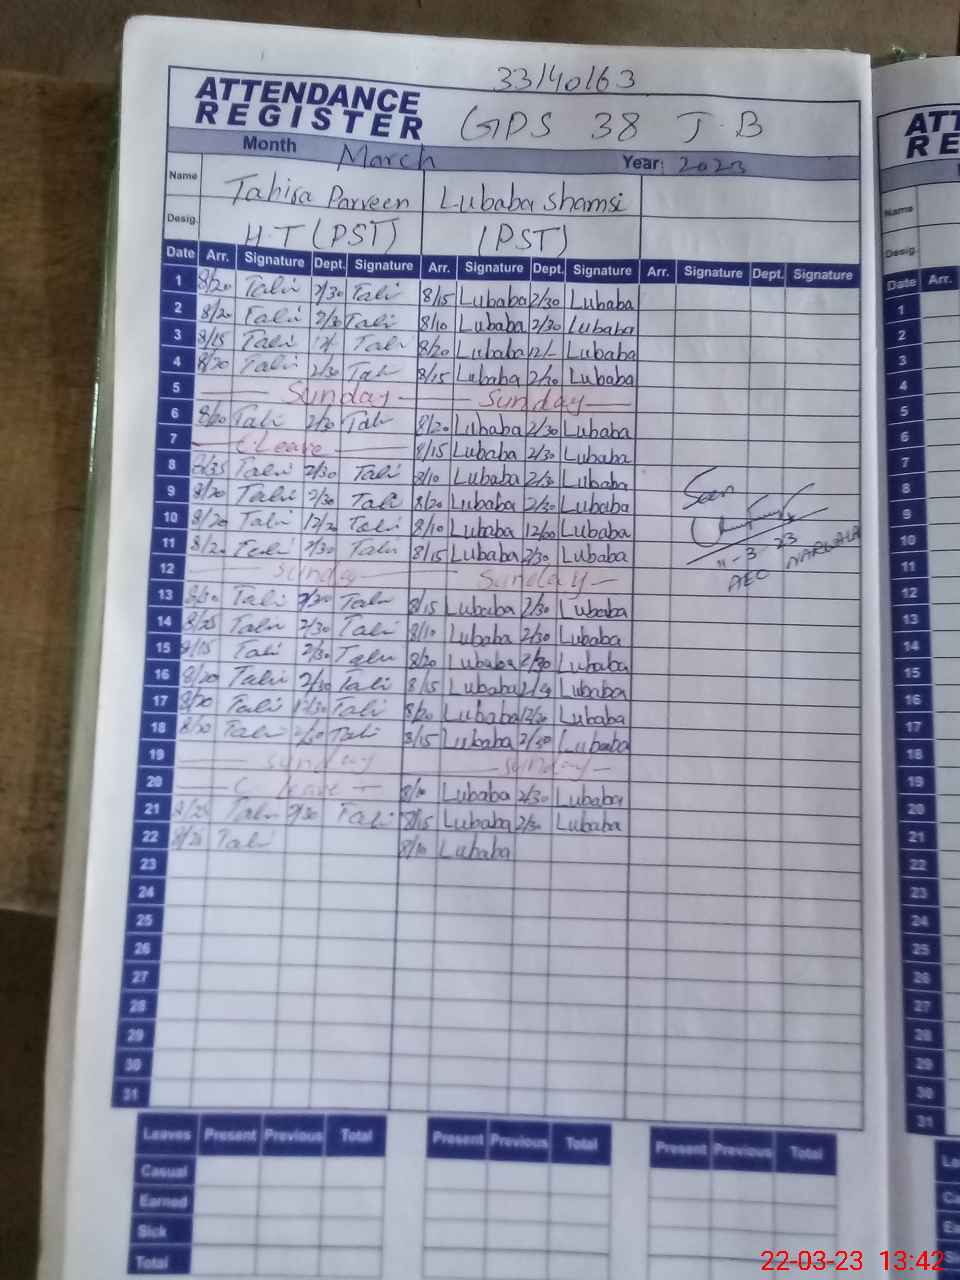 33140163
ATTENDANCE REGISTER GPS 38 J.B
Month March Year: 2023
Name Tahira Parveen Lubaba Shamsi
Desig. H.T (PST) (PST)
Date Arr. Signature Dept. Signature Arr. Signature Dept. Signature Arr. Signature Dept. Signature
1 8/20 Tali 2/30 Tali 8/15 Lubaba 2/30 Lubaba
2 8/20 Tali 2/30 Tali 8/10 Lubaba 2/30 Lubaba
3 8/15 Tali Tali 8/20 Lubaba 12/- Lubaba
4 8/20 Tali 2/30 Tali 8/15 Lubaba 2/30 Lubaba
5 Sunday Sunday
6 8/20 Tali 2/30 Tali 8/20 Lubaba 2/30 Lubaba
7 C.Leave 8/15 Lubaba 2/30 Lubaba
8 8/35 Tali 2/30 Tali 8/10 Lubaba 2/30 Lubaba
9 8/20 Tali 2/30 Tali 8/20 Lubaba 2/30 Lubaba
10 8/20 Tali 12/20 Tali 8/10 Lubaba 12/00 Lubaba
11 Tali 2/30 Tali 8/15 Lubaba 2/30 Lubaba
12 Sunday Sunday
13 Tali Tali 8/15 Lubaba 2/30 Lubaba
14 Tali 2/30 Tali 8/10 Lubaba 2/30 Lubaba
15 8/15 Tali 2/30 Tali 8/20 Lubaba 2/30 Lubaba
16 8/20 Tali 2/30 Tali 8/15 Lubaba Lubaba
17 8/20 Tali 12/30 Tali 8/20 Lubaba 12/20 Lubaba
18 8/20 Tali 2/30 Tali 8/15 Lubaba 2/30 Lubaba
19 Sunday Sunday
20 C. leave 8/10 Lubaba 2/30 Lubaba
21 8/25 Tali 2/30 Tali 8/15 Lubaba 2/30 Lubaba
22 Tali 8/10 Lubaba
23
24
25
26
27
28
29
30
31
Seen
11-3 23
AEO NARWALA
Leaves Present Previous Total Present Previous Total Present Previous Total
Casual
Earned
Sick
Total
ATT
RE
Name
Desig.
Date Arr.
1
2
3
4
5
6
7
8
9
10
11
12
13
14
15
16
17
18
19
20
21
22
23
24
25
26
27
28
29
30
31
22-03-23 13:42